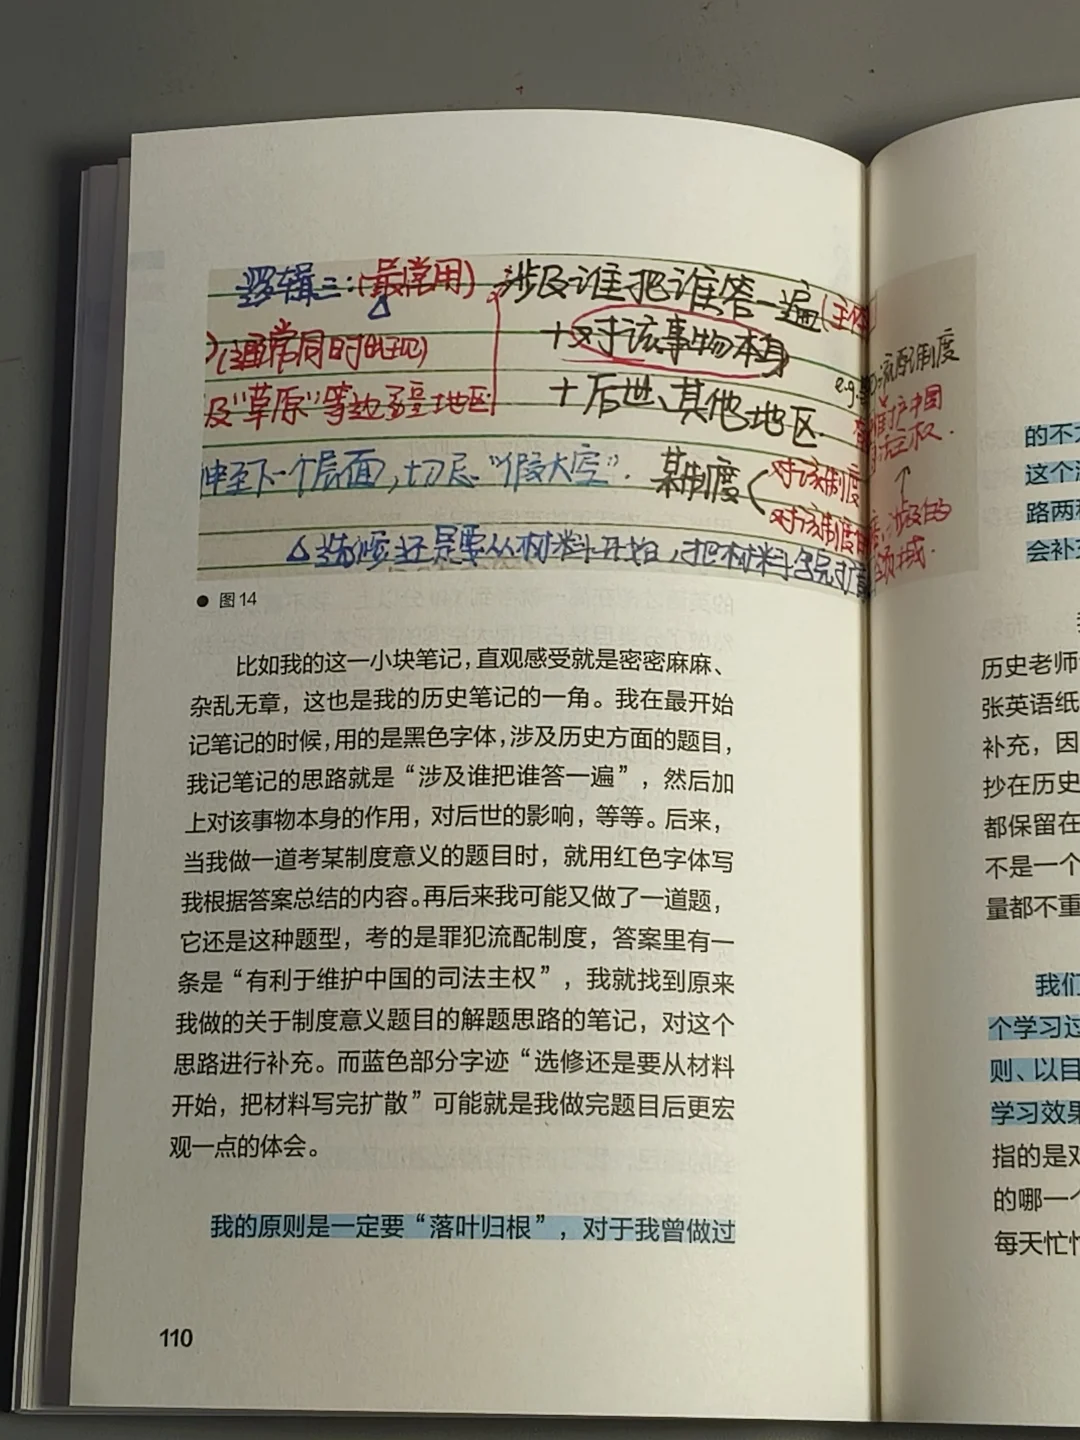 逻辑三:(最常用) 涉及谁把谁答一遍(主体)
(通常同时出现) +对该事物本身
及“草原”等边疆地区 +后世、其他地区.
e.g. 流配制度
维护中国
司法主权.
至下一个层面,切忌“假大空”. 某制度(对该制度
对该制度 涉及的
领域.
△选修还是要从材料开始,把材料写完扩散
● 图14
比如我的这一小块笔记,直观感受就是密密麻麻、
杂乱无章,这也是我的历史笔记的一角。我在最开始
记笔记的时候,用的是黑色字体,涉及历史方面的题目,
我记笔记的思路就是“涉及谁把谁答一遍”,然后加
上对该事物本身的作用,对后世的影响,等等。后来,
当我做一道考某制度意义的题目时,就用红色字体写
我根据答案总结的内容。再后来我可能又做了一道题,
它还是这种题型,考的是罪犯流配制度,答案里有一
条是“有利于维护中国的司法主权”,我就找到原来
我做的关于制度意义题目的解题思路的笔记,对这个
思路进行补充。而蓝色部分字迹“选修还是要从材料
开始,把材料写完扩散”可能就是我做完题目后更宏
观一点的体会。
我的原则是一定要“落叶归根”,对于我曾做过
110
的不
这个
路两
会补
历史老师
张英语纸
补充,因
抄在历史
都保留在
不是一个
量都不重
我们
个学习过
则、以目
学习效果
指的是对
的哪一个
每天忙忙